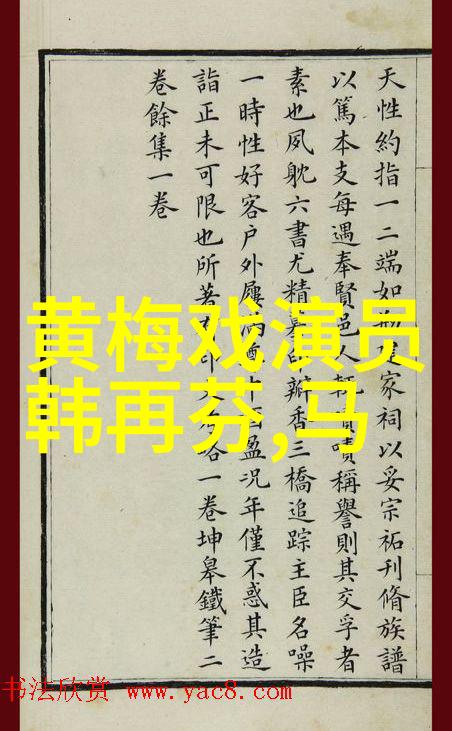 天性約指一二端如家祠以妥宗祏刊脩族譜
以篤本支每遇奉賢邑人輒嘖嘖稱譽則其交孚者
素也夙躭六書尤精摹印瓣香三橋追踪主臣名噪
一時性好客户外屨滿盈况年僅不惑其造
詣正未可限也所著有印一卷坤皋鐵筆二
卷餘集一卷
黄梅戏演员
韩再芬,马
书法欣赏 www.yac8.com